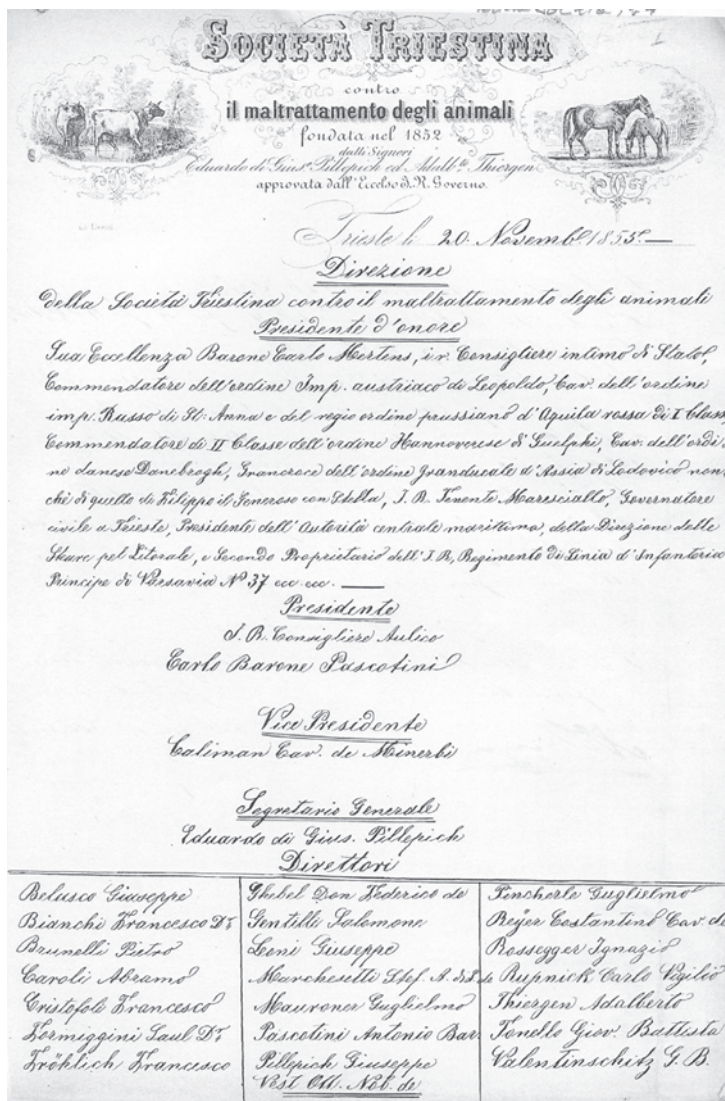 SOCIETÀ TRIESTINA
contro
il maltrattamento degli animali
fondata nel 1852
dalli Signori
Eduardo di Gius.e Pillepich ed Adalb.to Thiergen
approvata dall'Eccelso I. R. Governo.
Trieste li 20. Novemb.e 1855. —
Direzione
della Società Triestina contro il maltrattamento degli animali
Presidente d'onore
Sua Eccellenza Barone Carlo Mertens, i. r. Consigliere intimo di Stato,
Commendatore dell'ordine Imp. austriaco di Leopoldo, Cav. dell'ordine
imp. Russo di St. Anna e del regio ordine prussiano d'Aquila rossa di I Class
Commendatore di II Classe dell'ordine Hannoverese di Guelphi, Cav. dell'ordi,
ne danese Danebrogh, Grancroce dell'ordine granducale d'Assia di Lodovico non
chè di quello di Filippo il Generoso con Stella, I. R. Tenente Maresciallo, Governatore
civile a Trieste, Presidente dell'Autorità centrale marittima, della Direzione delle
Steure pel Litorale, e Secondo Proprietario dell'I. R. Regimento di Linia d'Infanteria
Principe di Varsavia No 37 ecc. ecc. —
Presidente
I. R. Consigliere Aulico
Carlo Barone Pascotini
Vice Presidente
Caliman Cav. de Minerbi
Segretario Generale
Eduardo di Gius. Pillepich
Direttori
Belusco Giuseppe
Bianchi Francesco Dr.
Brunelli Pietro
Caroli Abramo
Cristofoli Francesco
Formiggini Saul Dr.
Fröhlich Francesco
Ghebel Don Federico de
Gentilli Salomone
Leoni Giuseppe
Marchesetti Stef. A. de
Mauroner Guglielmo
Pascotini Antonio Bar.
Pillepich Giuseppe
Vest Ott. Nob. de
Pincherle Guglielmo
Reyer Costantino Cav. de
Rossegger Ignazio
Rupnick Carlo Vigilio
Thiergen Adalberto
Tonello Giov. Battista
Valentinschitz G. B.